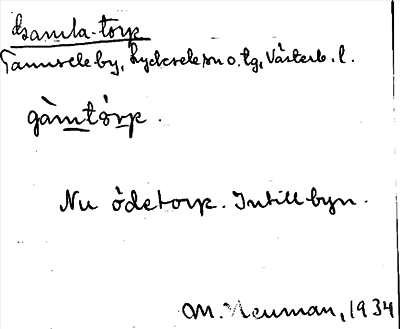 Gamla-torp
Tannsele by, Lycksele sn o. tg, Västerb. l.
gàmtórp.
Nu ödetorp. Intill byn.
M. Neuman, 1934